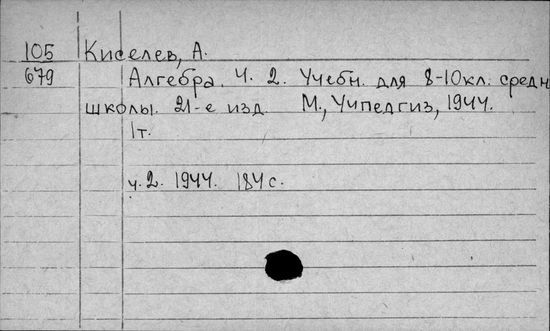 105 Киселев, А.
679 Алгебра. Ч. 2. Учебн. для 8-10кл. средн
школы. 21-е изд. М., Учпедгиз, 1944.
1т.
ч. 2. 1944. 184 с.